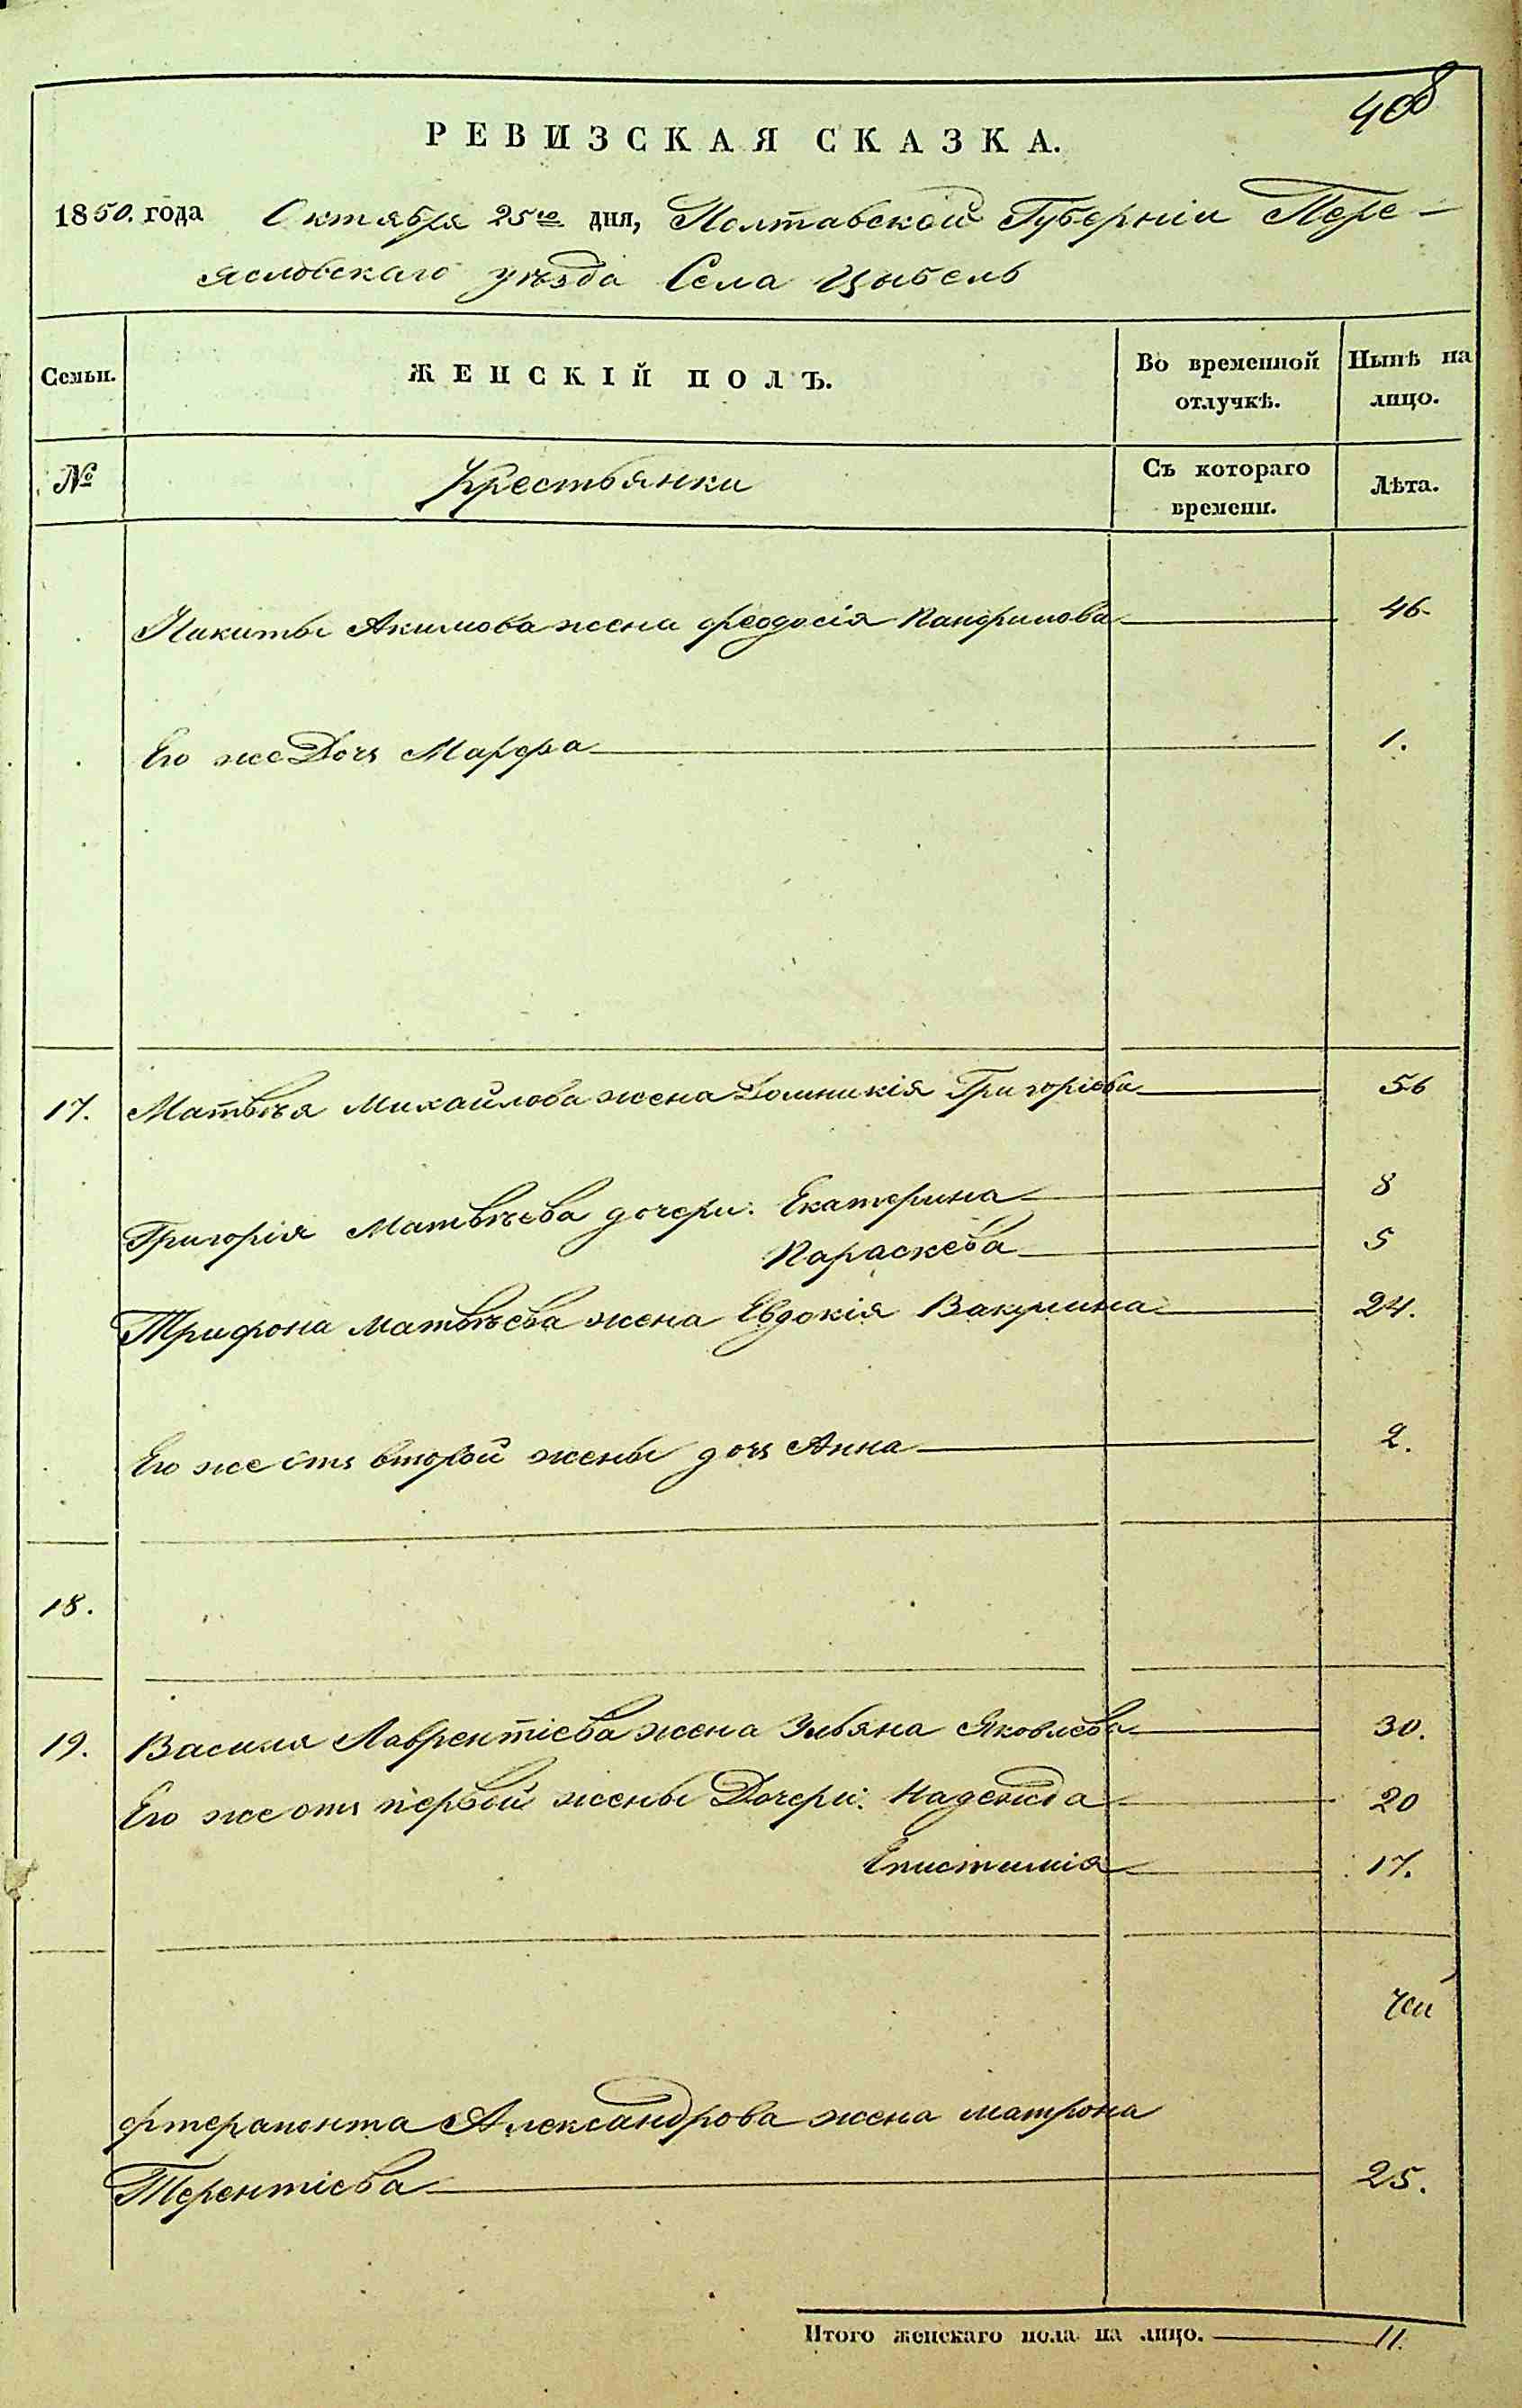 408
РЕВИЗСКАЯ СКАЗКА.
1850. года Октября 25го дня, Полтавской Губерніи Пере-
яславскаго уѣзда Села Цыбель
Семьи. ЖЕНСКІЙ ПОЛЪ. Во временной отлучкѣ. Нынѣ на лицо.
№ Крестьянки Съ котораго времени. Лѣта.
Никиты Акимова жена Феодосія Панфилова 46.
Его же Дочь Марфа 1.
17. Матвѣя Михайлова жена Домникія Григоріева 56
Григорія Матвѣева дочери: Екатерина 8
Параскева 5
Трифона Матвѣева жена Евдокія Вакулина 24.
Его же отъ второй жены дочь Анна 2.
18.
19. Василія Лаврентіева жена Ульяна Яковлева 30.
Его же отъ первой жены Дочери: Надежда 20
Епистимія 17.
Фтерапонта Александрова жена Матрона
Терентіева 25.
Итого женскаго пола на лицо. 11.